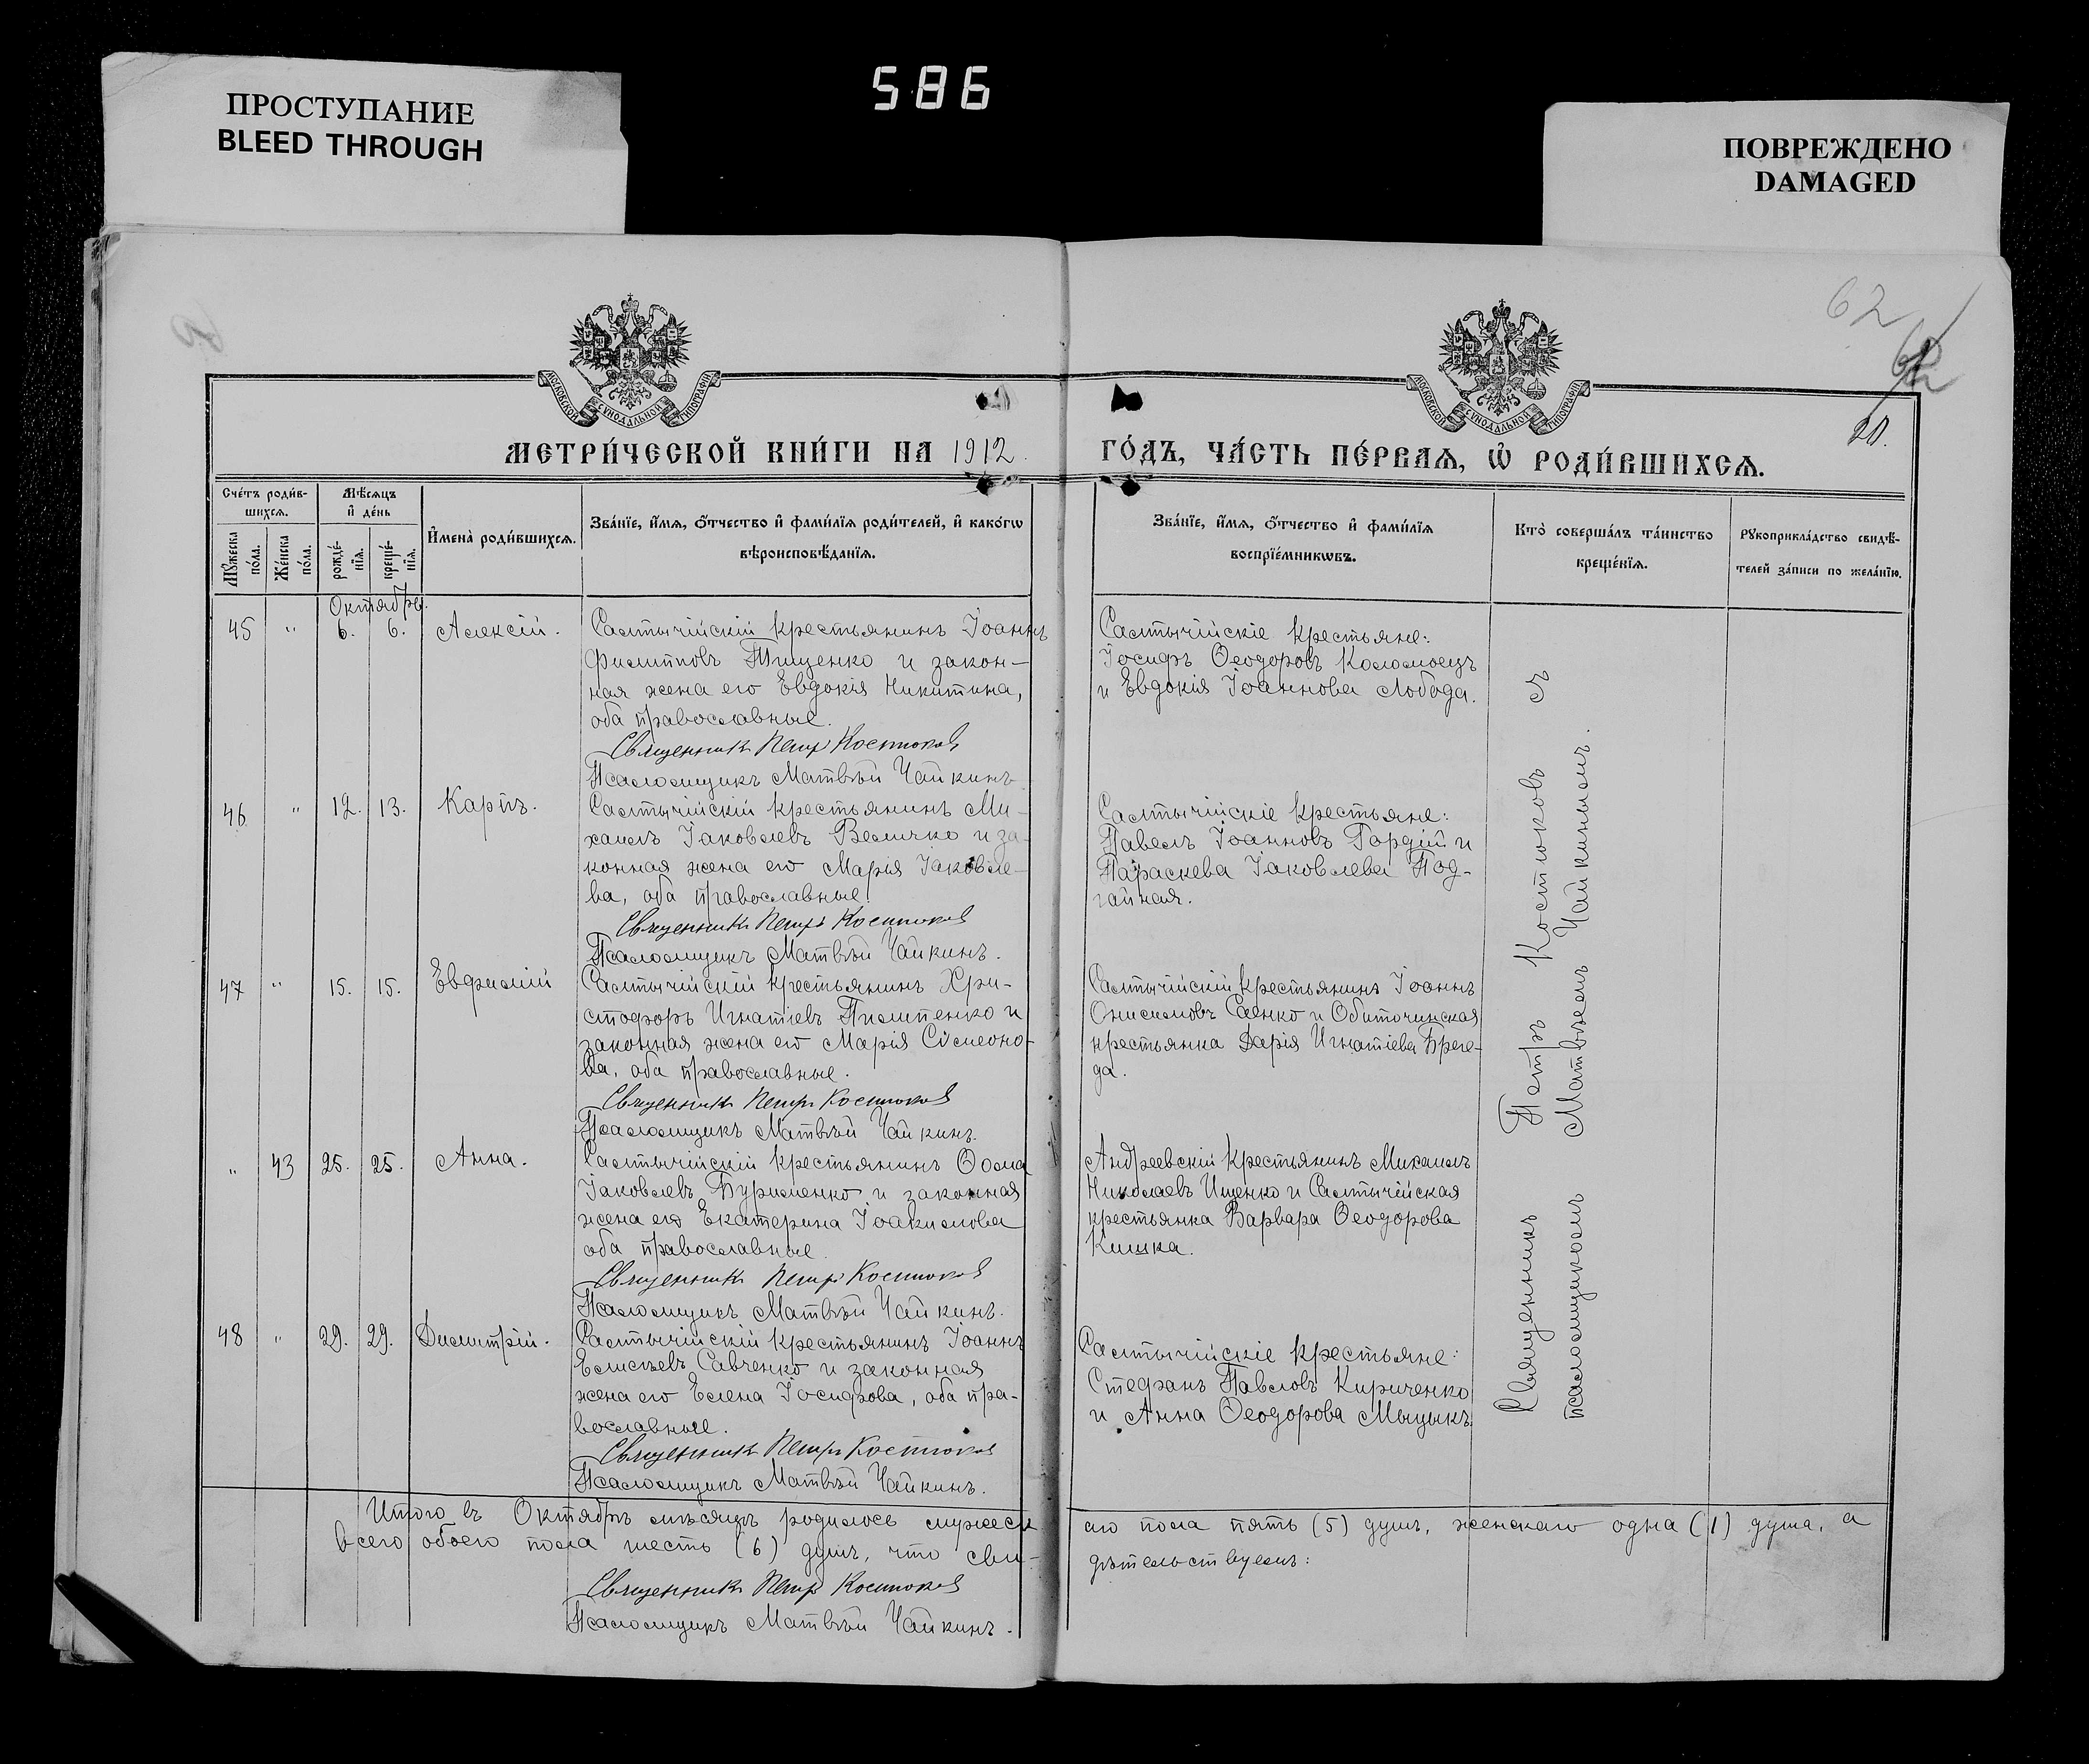 586
ПРОСТУПАНИЕ
BLEED THROUGH
ПОВРЕЖДЕНО
DAMAGED
62
20.
МОСКОВСКОЙ СѴНОДАЛЬНОЙ ТИПОГРАФІИ
МОСКОВСКОЙ СѴНОДАЛЬНОЙ ТИПОГРАФІИ
МЕТРИ́ЧЕСКОЙ КНИ́ГИ НА 1912. ГО́ДЪ, ЧА́СТЬ ПЕ́РВАѦ, Ѡ҆ РОДИ́ВШИХСѦ.
Сче́тъ роди́в-
шихсѧ.
Мꙋ́жеска по́ла.
Же́нска по́ла.
Мѣ́сѧцъ и҆ де́нь
рожде́-
нїѧ.
креще́-
нїѧ.
И҆мена̀ роди́вшихсѧ.
Зва́нїе, и҆́мѧ, ѻ҆́тчество и҆ фами́лїѧ роди́телей, и҆ како́гѡ
вѣроисповѣ́данїѧ.
Зва́нїе, и҆́мѧ, ѻ҆́тчество и҆ фами́лїѧ
воспрїе́мникѡвъ.
Кто̀ соверша́лъ та́инство
креще́нїѧ.
Рꙋкоприкла́дство свидѣ́-
телей за́писи по жела́нїю.
Октябрь.
45 " 6. 6. Алексій.
Салтычійскій крестьянинъ Іоаннъ
Филипповъ Тищенко и закон-
ная жена его Евдокія Никитина,
оба православные.
Священникъ Петръ Костюковъ
Псаломщикъ Матвѣй Чайкинъ
Салтычійскіе крестьяне:
Іосифъ Ѳеодоровъ Коломоецъ
и Евдокія Іоаннова Лобода.
46 " 12. 13. Карпъ.
Салтычійскій крестьянинъ Ми-
хаилъ Іаковлевъ Величко и за-
конная жена его Марія Іаковле-
ва, оба православные.
Священникъ Петръ Костюковъ
Псаломщикъ Матвѣй Чайкинъ.
Салтычійскіе крестьяне:
Павелъ Іоанновъ Гордій и
Параскева Іаковлева Под-
гайная.
47 " 15. 15. Евфимій
Салтычійскій крестьянинъ Хри-
стофоръ Игнатіевъ Пилипенко и
законная жена его Марія Сѵмеоно-
ва, оба православные.
Священникъ Петръ Костюковъ
Псаломщикъ Матвѣй Чайкинъ.
Салтычійскій крестьянинъ Іоаннъ
Онисимовъ Саенко и Обиточинская
крестьянка Дарія Игнатіева Бреге-
да.
" 43 25. 25. Анна.
Салтычійскій крестьянинъ Ѳома
Іаковлевъ Бурименко и законная
жена его Екатерина Іоакимова
оба православные.
Священникъ Петръ Костюковъ
Псаломщикъ Матвѣй Чайкинъ.
Андреевскій крестьянинъ Михаилъ
Николаевъ Ищенко и Салтычійская
крестьянка Варвара Ѳеодорова
Кишка.
48 " 29. 29. Димитрій.
Салтычійскій крестьянинъ Іоаннъ
Елисѣевъ Савченко и законная
жена его Елена Іосифова, оба пра-
вославные.
Священникъ Петръ Костюковъ
Псаломщикъ Матвѣй Чайкинъ.
Салтычійскіе крестьяне:
Стефанъ Павловъ Кириченко
и Анна Ѳеодорова Мыцыкъ.
Священникъ Петръ Костюковъ съ
псаломщикомъ Матвѣемъ Чайкинымъ.
Итого въ Октябрѣ мѣсяцѣ родилось мужеск
аго пола пять (5) душъ, женскаго одна (1) душа, а
всего обоего пола шесть (6) душъ, что сви-
дѣтельствуемъ:
Священникъ Петръ Костюковъ
Псаломщикъ Матвѣй Чайкинъ.